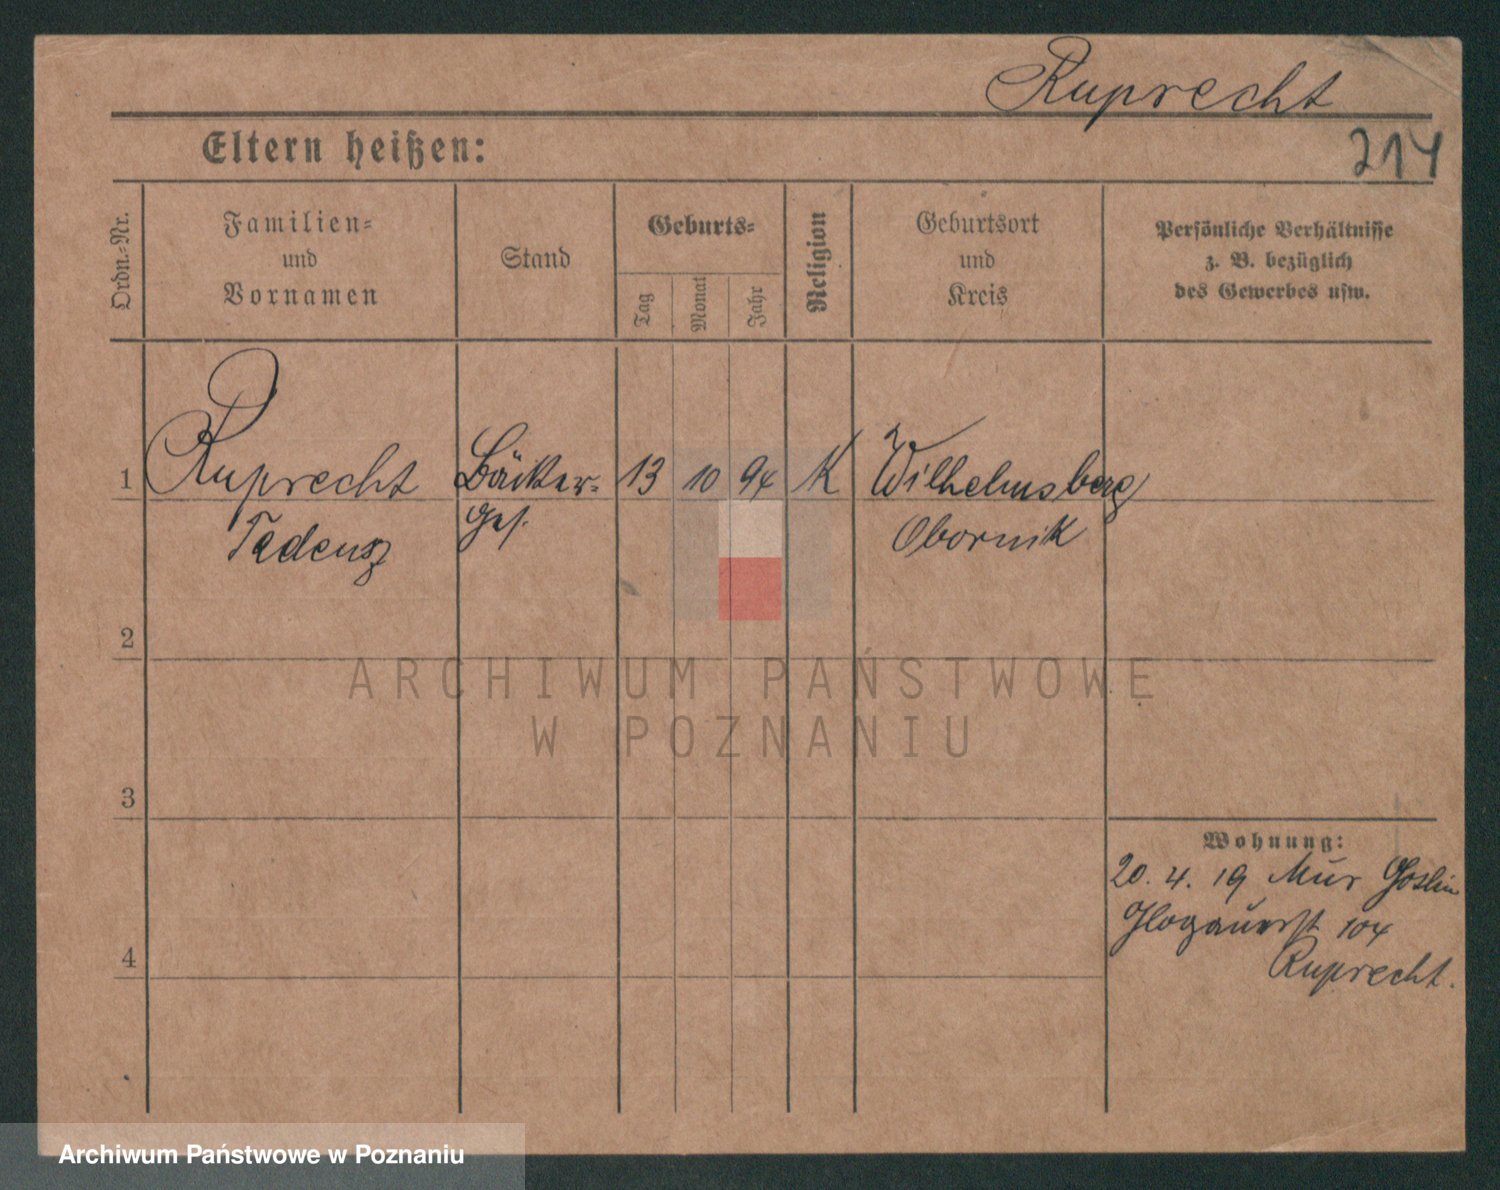 Ruprecht
214
Eltern heißen:
Ordn.-Nr.
Familien-
und
Vornamen
Stand
Geburts-
Tag
Monat
Jahr
Religion
Geburtsort
und
Kreis
Persönliche Verhältnisse
z. B. bezüglich
des Gewerbes usw.
1 Ruprecht Bäcker- 13 10 94 K Wilhelmsberg
Tadeusz ges. Obornik
2
ARCHIWUM PAŃSTWOWE
W POZNANIU
3
Wohnung:
20. 4. 19 Mur Goslin
Glogauerst 104
Ruprecht.
4
Archiwum Państwowe w Poznaniu